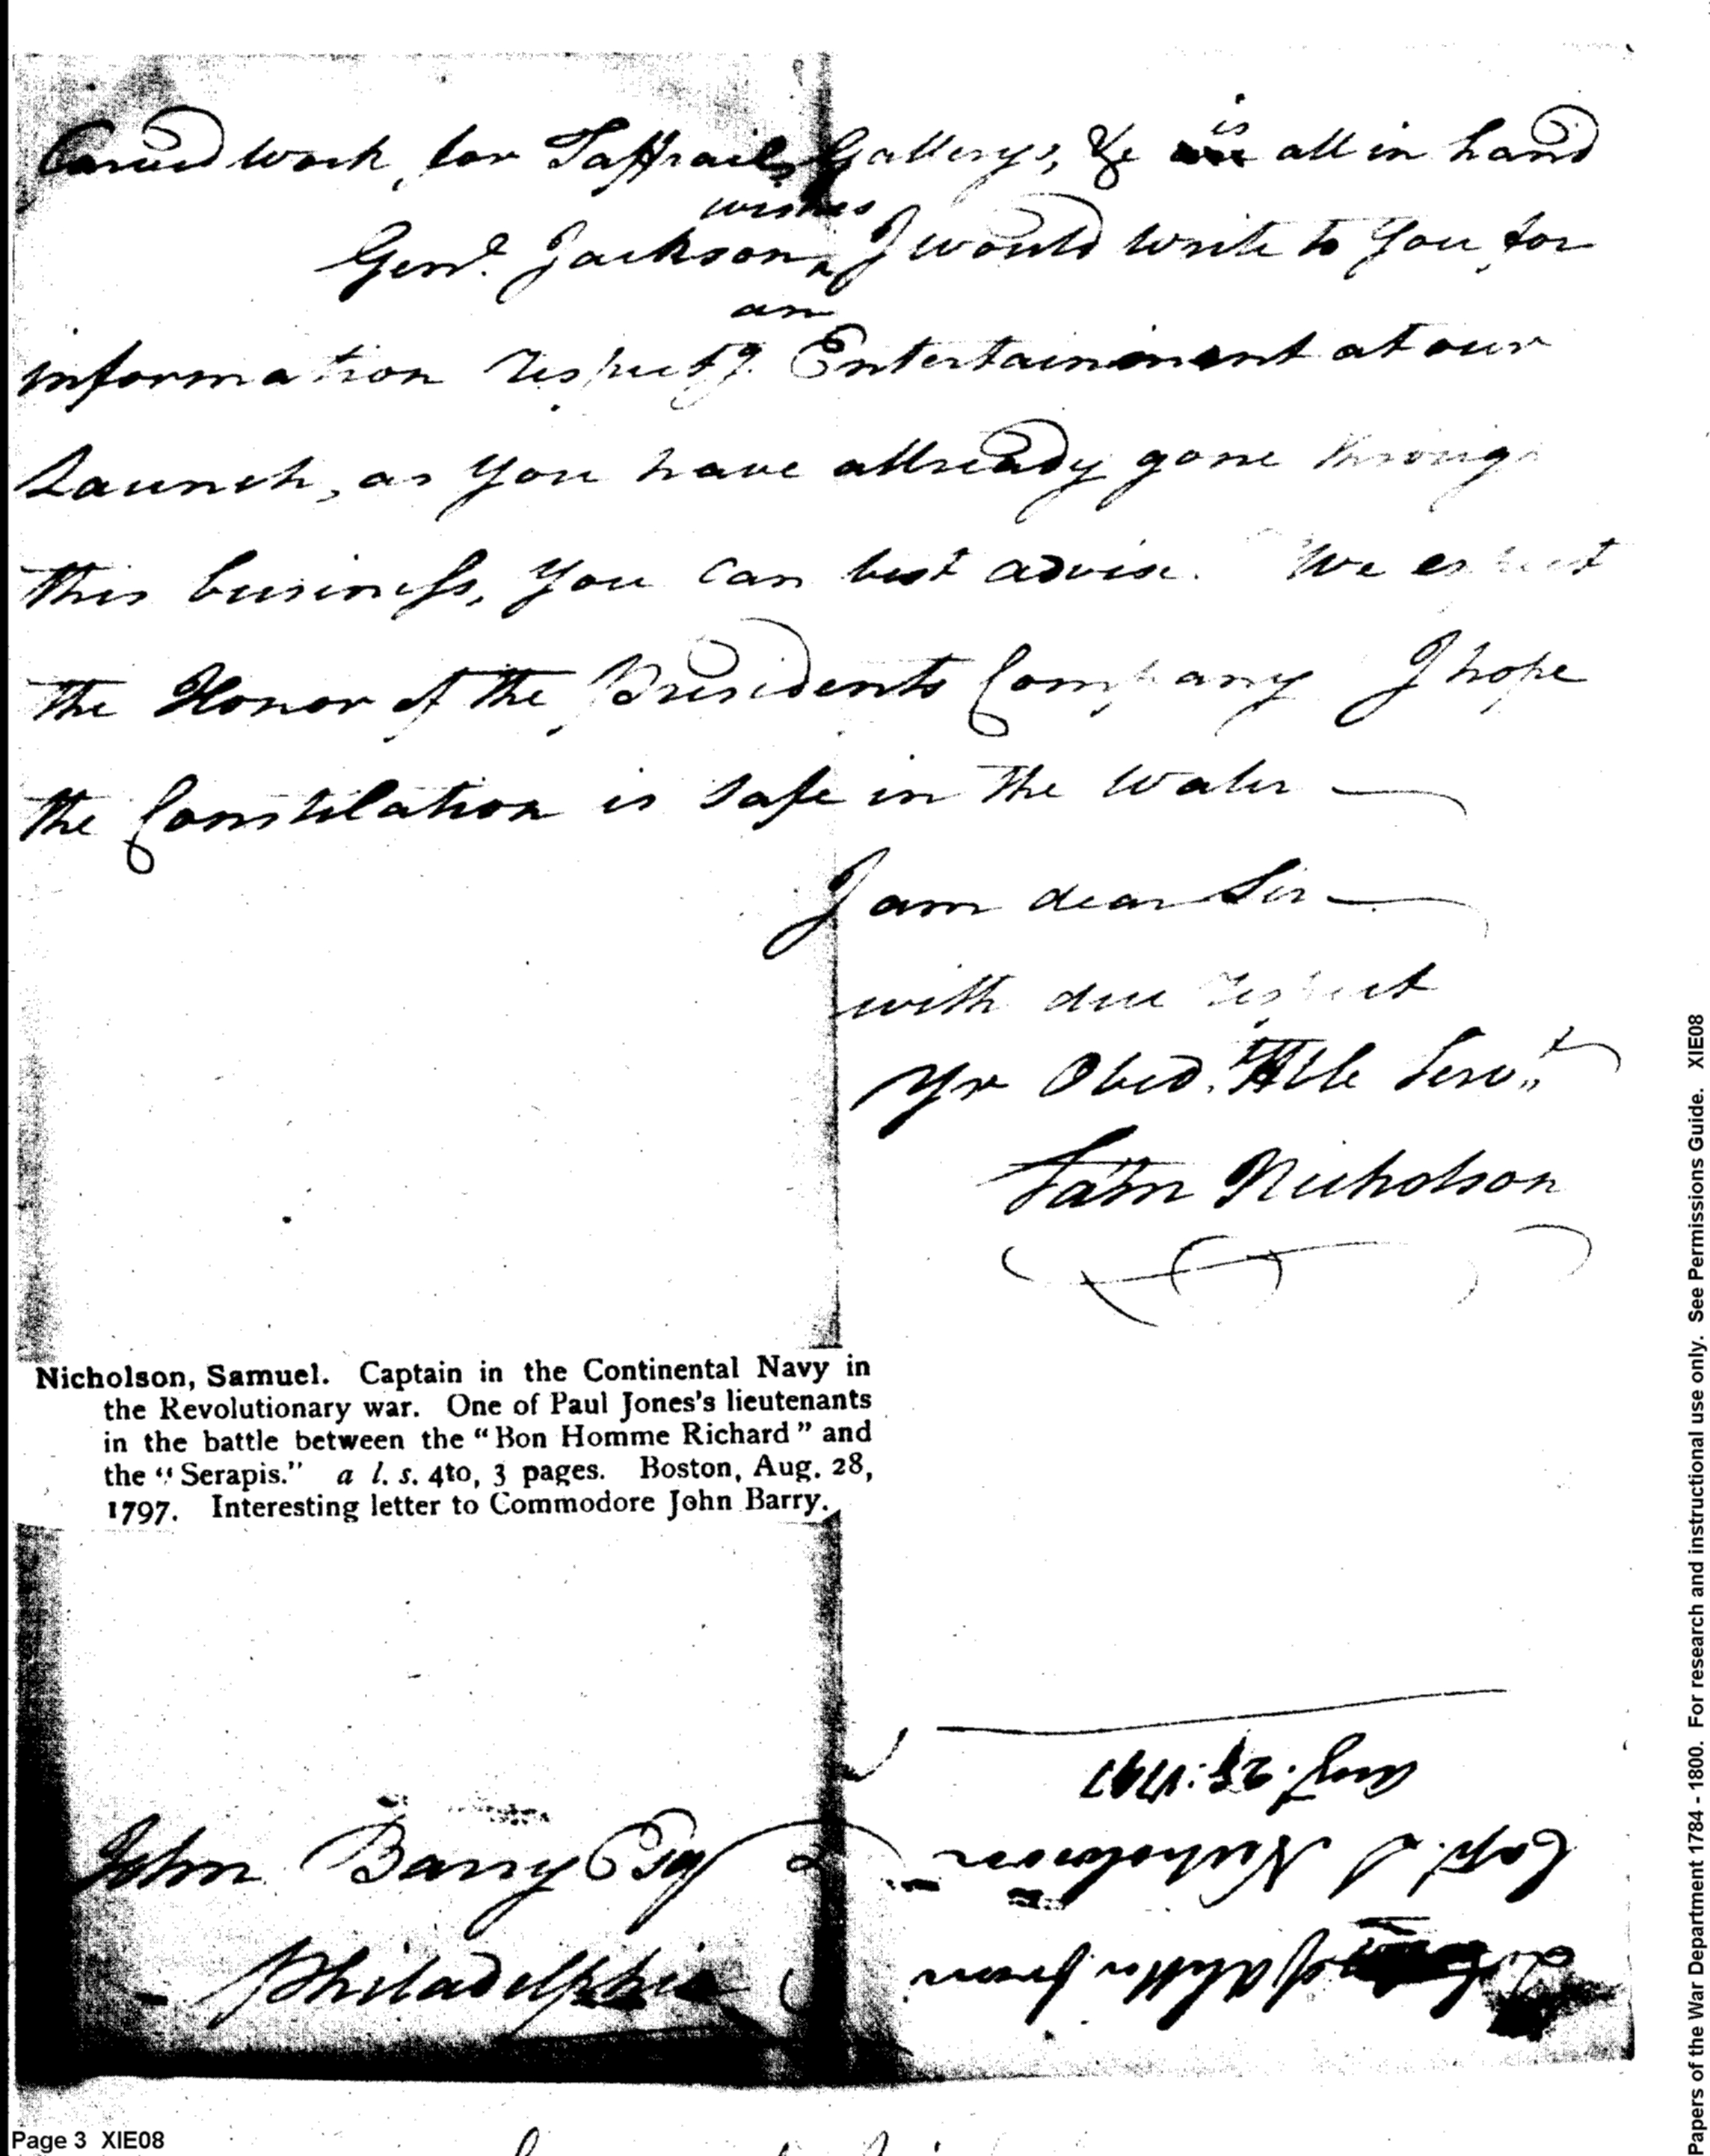 Carved work, for Taffrail, Gallerys, &c is all in hand
Genl. Jackson wishes I would write to You, for
information respectg. an Entertainment at our
Launch, as You have allready gone throug
this business, You can best advise. We expect
the Honor of the Presidents Company I hope
the Constilation is safe in the Water —
I am dear Sir —
with due respect
Yr Obed. Hble Servt
Sam Nicholson
Nicholson, Samuel. Captain in the Continental Navy in
the Revolutionary war. One of Paul Jones's lieutenants
in the battle between the "Bon Homme Richard" and
the "Serapis." a l. s. 4to, 3 pages. Boston, Aug. 28,
1797. Interesting letter to Commodore John Barry.
John Barry Esq
Philadelphia
of a letter from
Capt. S Nicholson
Augt. 28: 1797
Page 3 XIE08
Papers of the War Department 1784 - 1800. For research and instructional use only. See Permissions Guide. XIE08